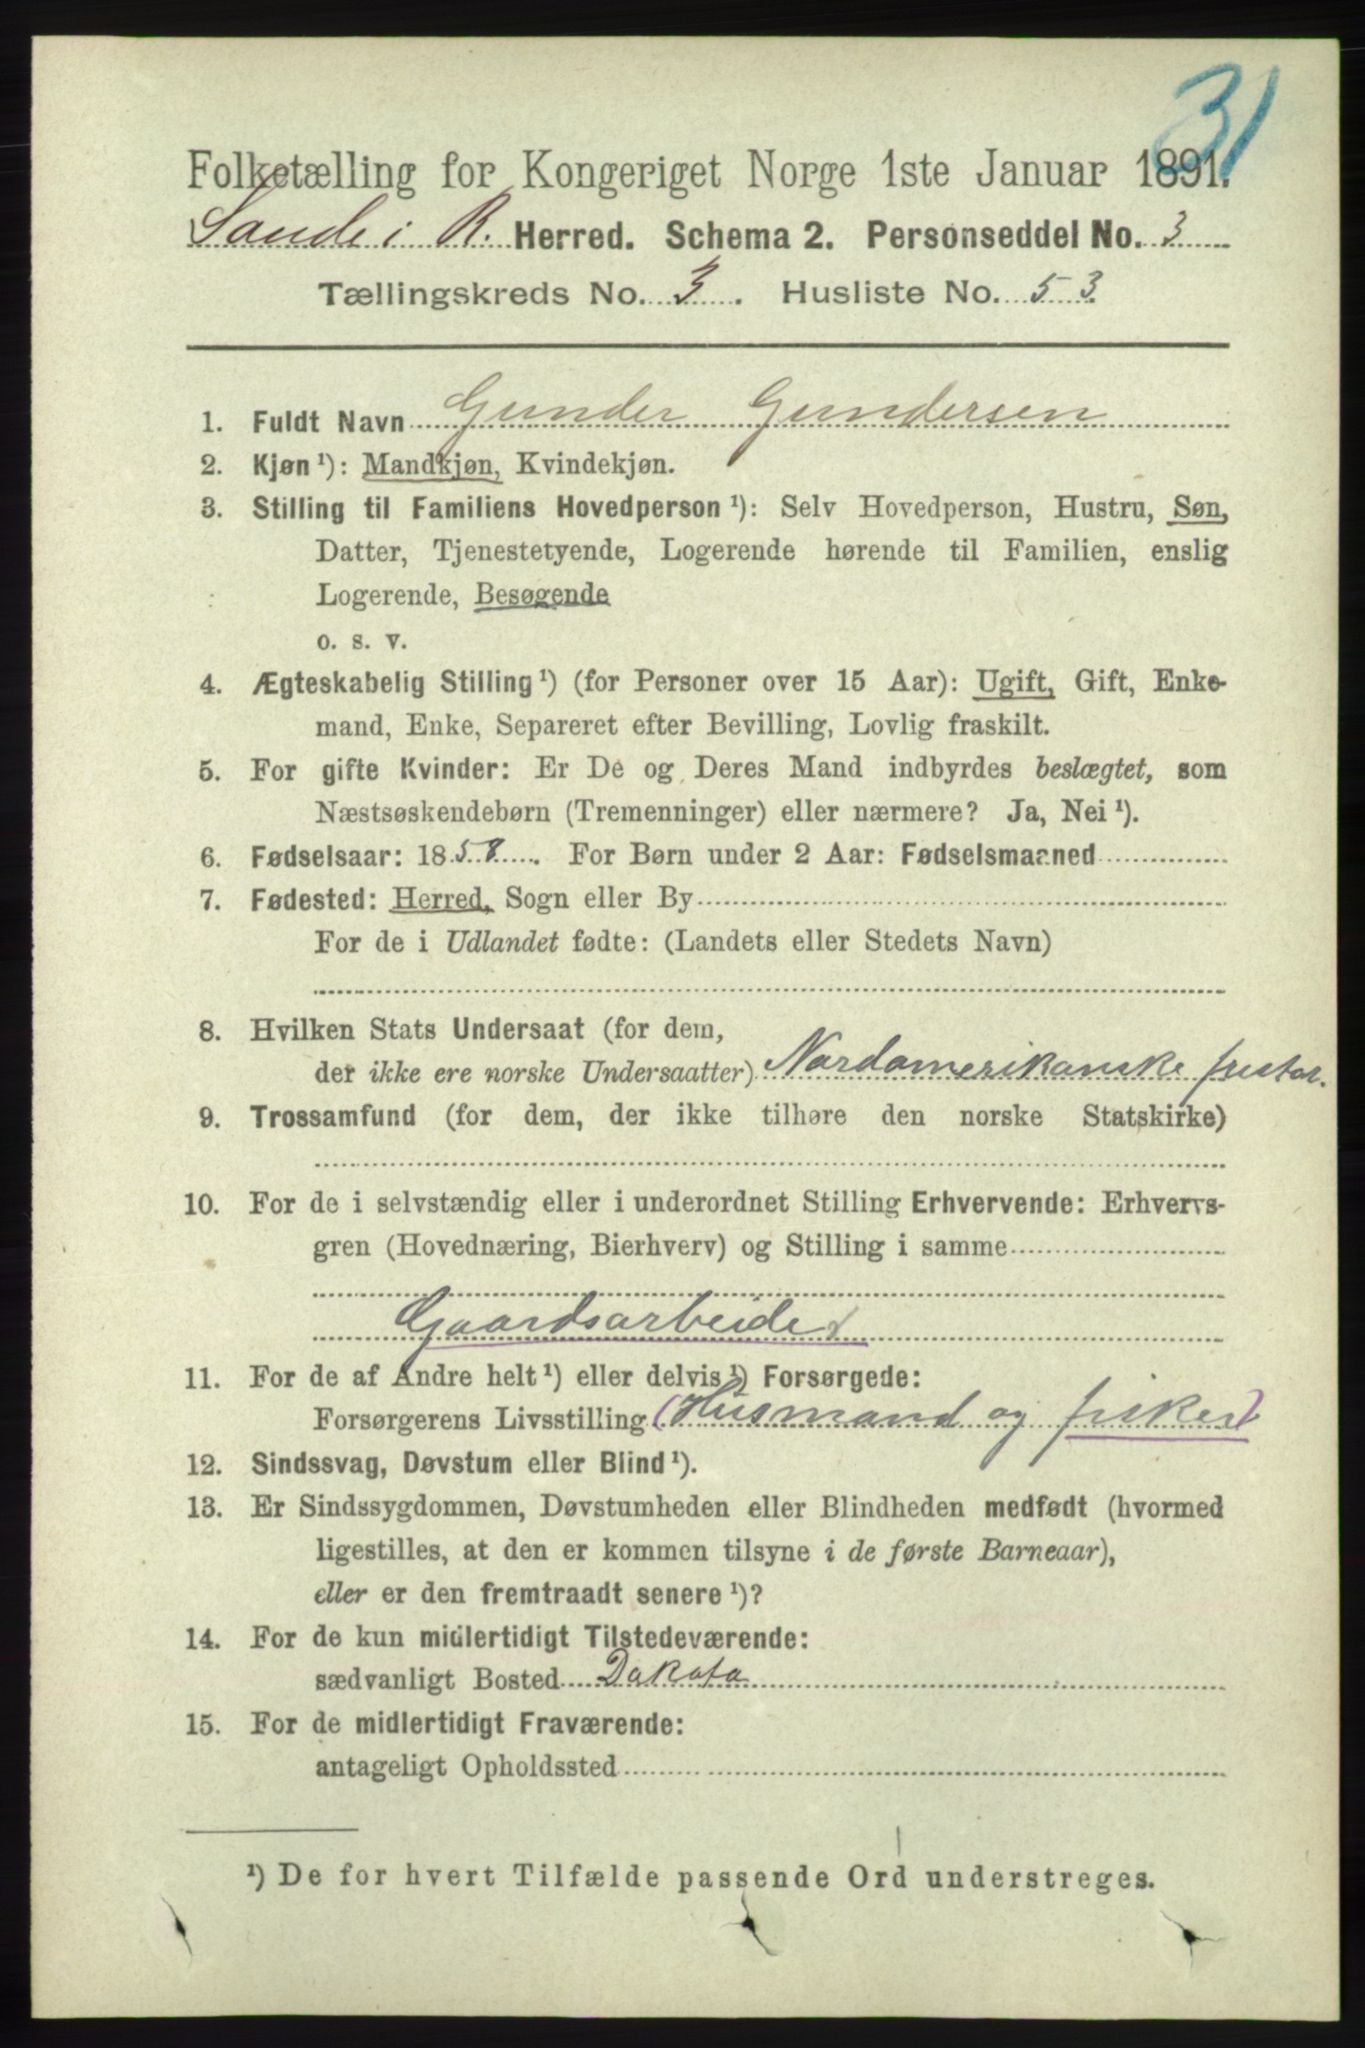 31
Folketælling for Kongeriget Norge 1ste Januar 1891.
Sande i R. Herred. Schema 2. Personseddel No. 3
Tællingskreds No. 3. Husliste No. 53
1. Fuldt Navn Gunder Gundersen
2. Kjøn¹): Mandkjøn, Kvindekjøn.
3. Stilling til Familiens Hovedperson¹): Selv Hovedperson, Hustru, Søn,
Datter, Tjenestetyende, Logerende hørende til Familien, enslig
Logerende, Besøgende
o. s. v.
4. Ægteskabelig Stilling¹) (for Personer over 15 Aar): Ugift, Gift, Enke-
mand, Enke, Separeret efter Bevilling, Lovlig fraskilt.
5. For gifte Kvinder: Er De og Deres Mand indbyrdes beslægtet, som
Næstsøskendebørn (Tremenninger) eller nærmere? Ja, Nei¹).
6. Fødselsaar: 1858. For Børn under 2 Aar: Fødselsmaaned
7. Fødested: Herred, Sogn eller By
For de i Udlandet fødte: (Landets eller Stedets Navn)
8. Hvilken Stats Undersaat (for dem,
der ikke ere norske Undersaatter) Nordamerikanske fristat.
9. Trossamfund (for dem, der ikke tilhøre den norske Statskirke)
10. For de i selvstændig eller i underordnet Stilling Erhvervende: Erhvervs-
gren (Hovednæring, Bierhverv) og Stilling i samme
Gaardsarbeider
11. For de af Andre helt¹) eller delvis¹) Forsørgede:
Forsørgerens Livsstilling (Husmand og fisker)
12. Sindssvag, Døvstum eller Blind¹).
13. Er Sindssygdommen, Døvstumheden eller Blindheden medfødt (hvormed
ligestilles, at den er kommen tilsyne i de første Barneaar),
eller er den fremtraadt senere¹)?
14. For de kun midlertidigt Tilstedeværende:
sædvanligt Bosted Dakota
15. For de midlertidigt Fraværende:
antageligt Opholdssted
¹) De for hvert Tilfælde passende Ord understreges.